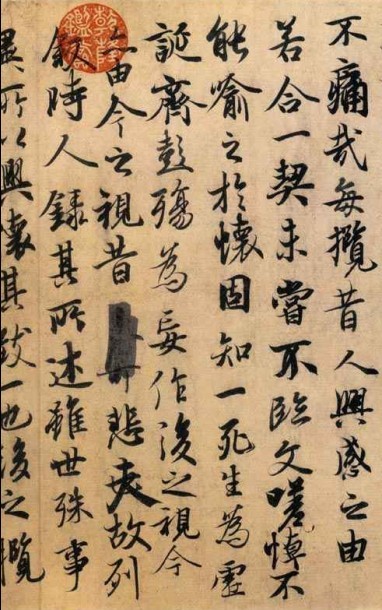 不痛哉每攬昔人興感之由
若合一契未嘗不臨文嗟悼不
能喻之於懷固知一死生為虛
誕齊彭殤為妄作後之視今
亦由今之視昔悲夫故列
敘時人錄其所述雖世殊事
異所以興懷其致一也後之攬
乾隆鑑賞